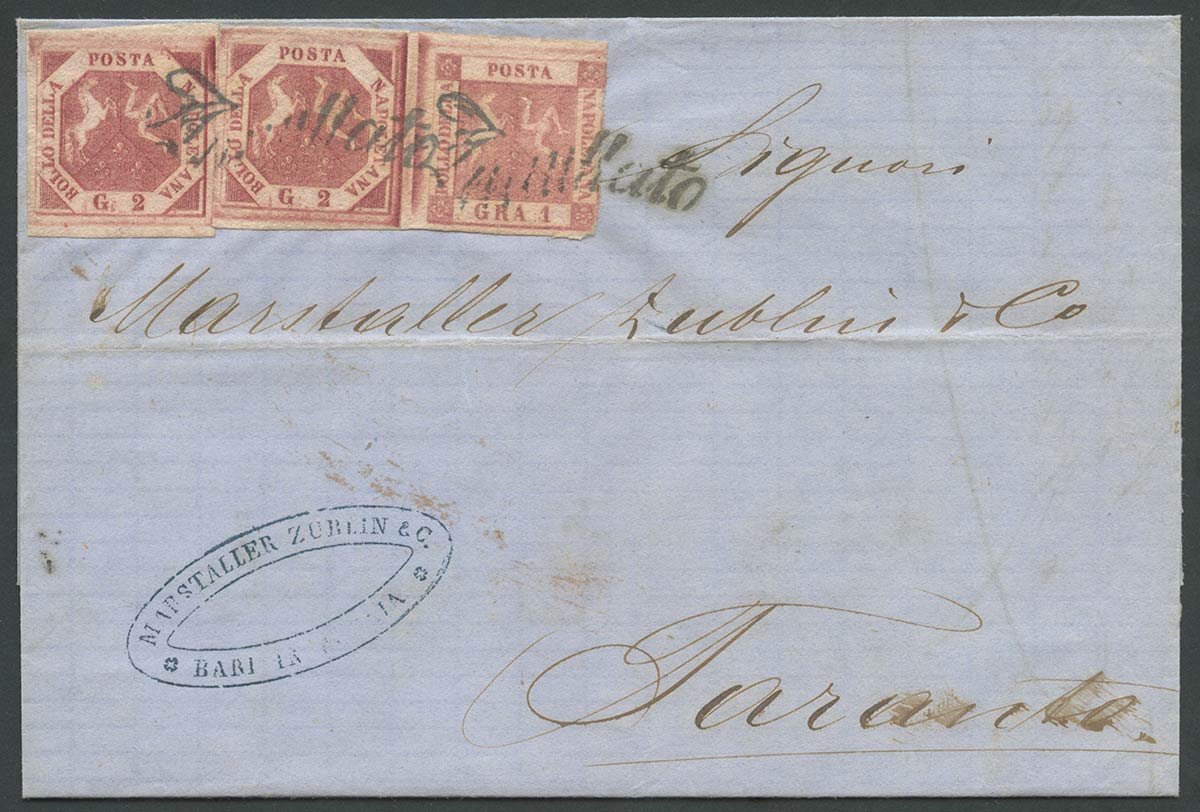 POSTA NAPOLETANA BOLLO DELLA G. 2
POSTA NAPOLETANA BOLLO DELLA G. 2
POSTA GRA 1
Annullato
Annullato
Signori
Marstaller Zublin & Co
MARSTALLER ZUBLIN & C.
BARI IN
Taranto.